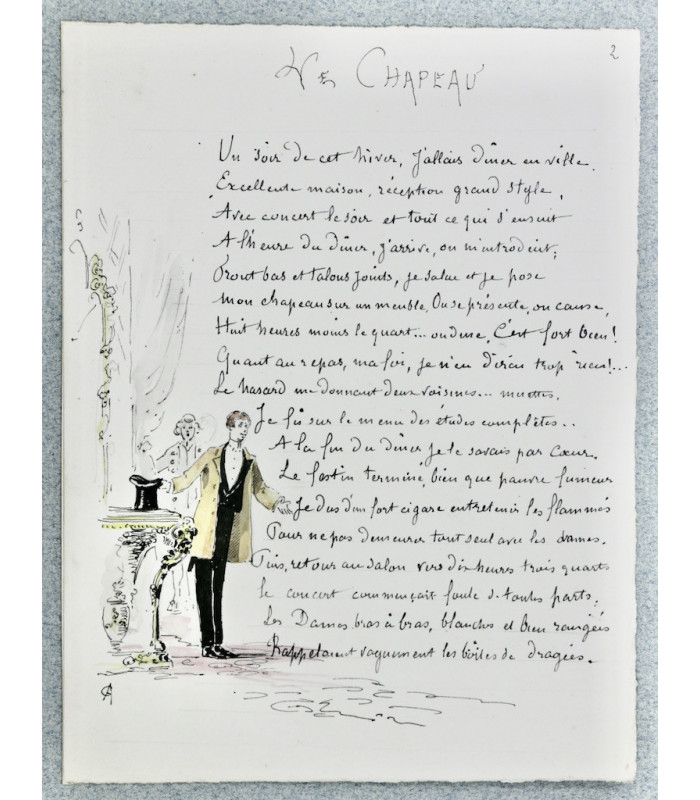 2
Le Chapeau
Un soir de cet hiver, j'allais dîner en ville.
Excellente maison, réception grand style,
Avec concert le soir et tout ce qui s'ensuit
A l'heure du dîner, j'arrive, on m'introduit;
Front bas et talons joints, je salue et je pose
mon chapeau sur un meuble, On se présente, on cause,
Huit heures moins le quart... on dine, C'est fort bien!
Quant au repas, ma foi, je n'en dirai trop rien!...
Le hasard me donnant deux voisines... muettes,
Je fis sur le menu des études complètes..
A la fin du dîner je le savais par Cœur.
Le festin terminé, bien que pauvre fumeur
Je dus d'un fort cigare entretenir les flammes
Pour ne pas demeurer tout seul avec les dames.
Puis, retour au salon vers dix heures trois quarts
le concert commençait foule de toutes parts;
Les Dames bras à bras, blanches et bien rangées
Rappelaient vaguement les boîtes de dragées.